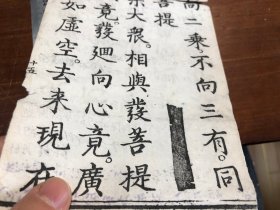 向二乘不向三有。同
菩提
大眾。相與發菩提
竟發迴向心竟。廣
如虛空。去來現在
十五